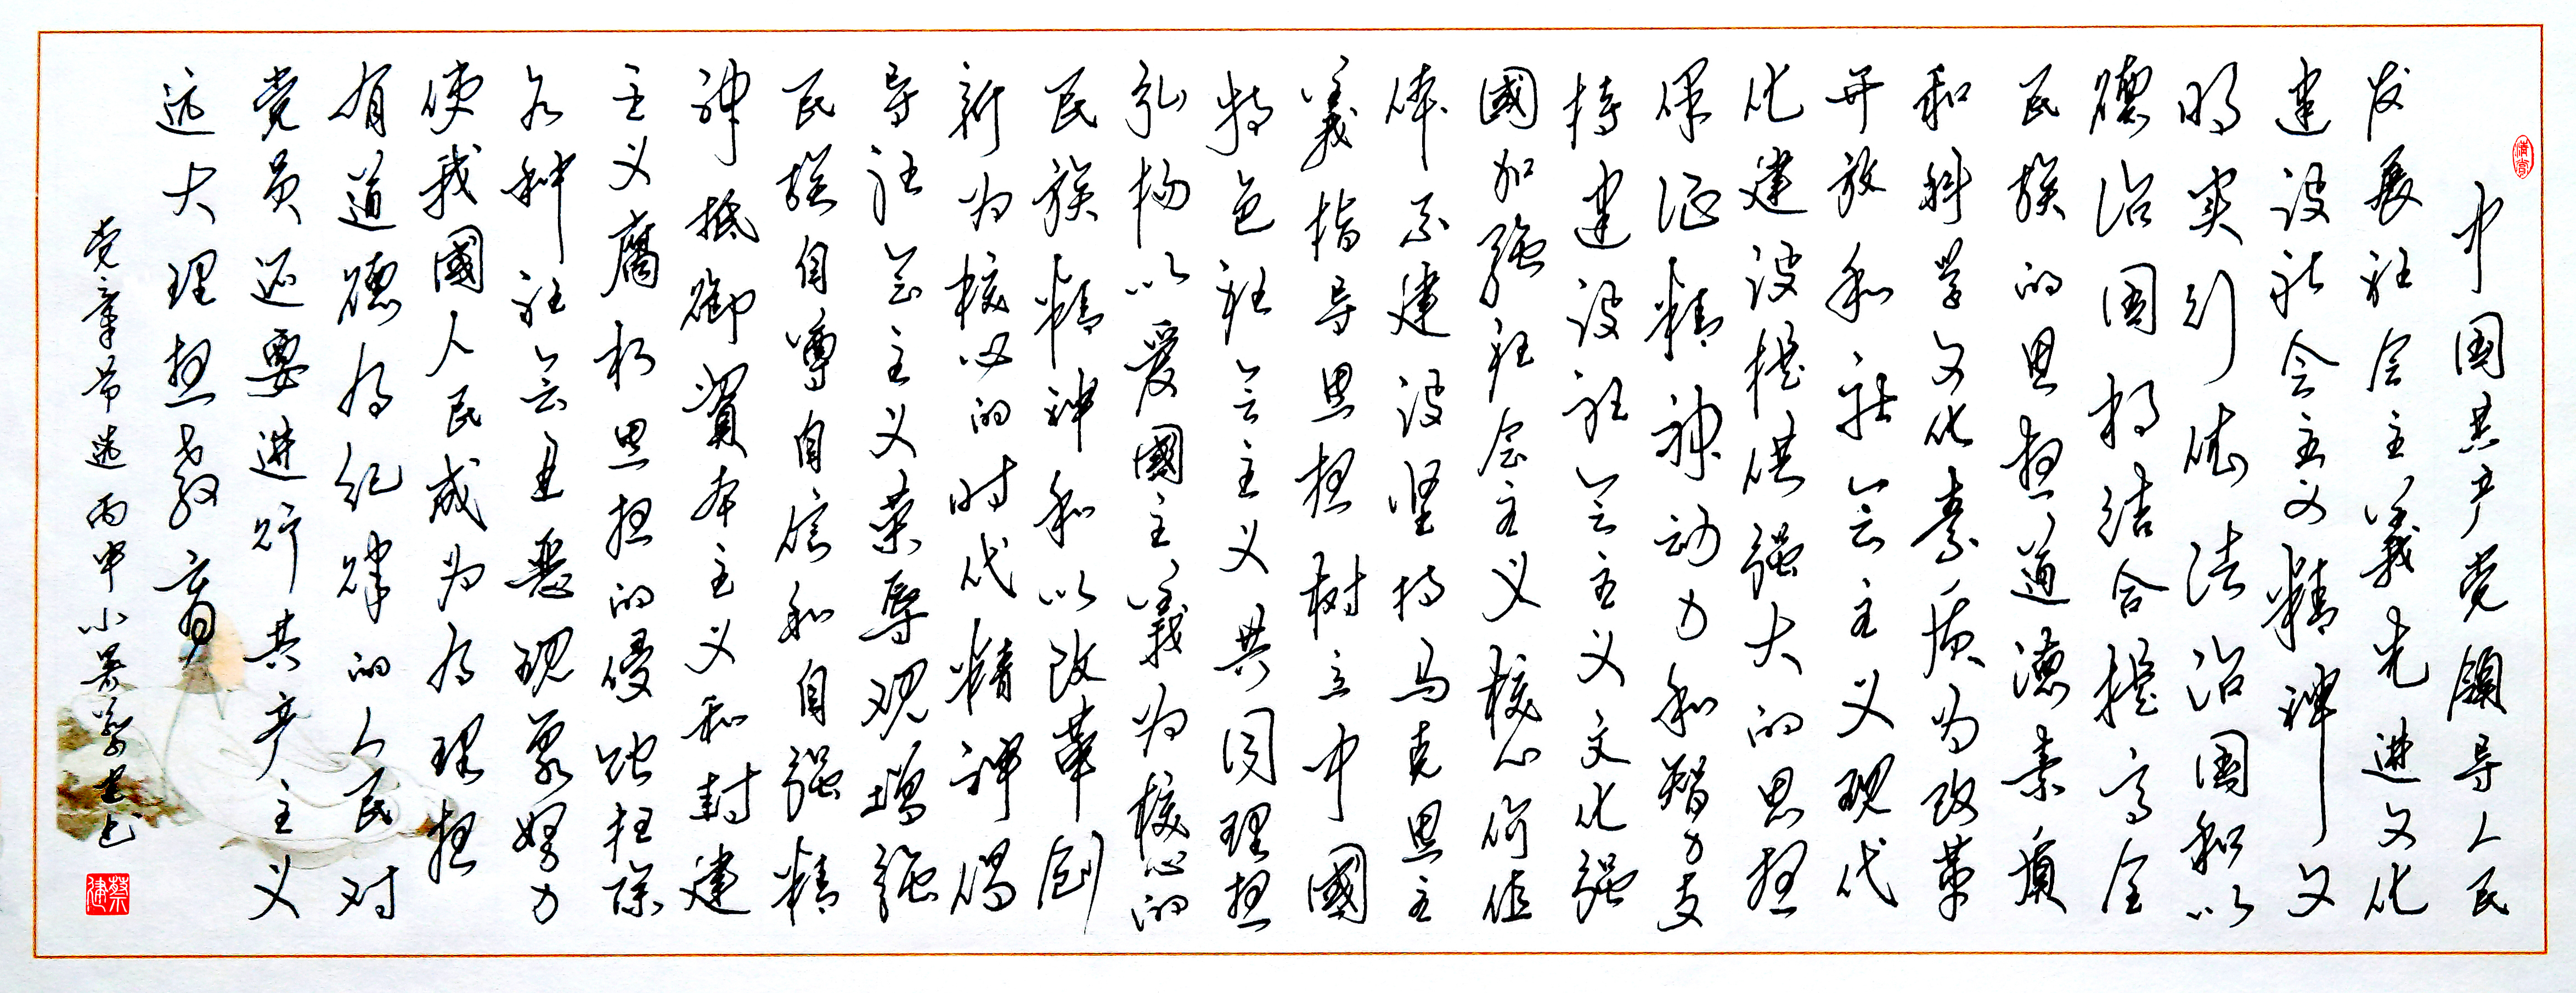 中国共产党领导人民
发展社会主義先进文化
建设社会主义精神文
明实行依法治国和以
德治国相结合提高全
民族的思想道德素质
和科学文化素质为改革
开放和社会主义现代
化建设提供强大的思想
保证精神动力和智力支
持建设社会主义文化强
國加强社会主义核心价值
体系建设坚持马克思主
義指导思想树立中國
特色社会主义共同理想
弘扬以爱國主義为核心的
民族精神和以改革创
新为核心的时代精神倡
导社会主义荣辱观增强
民族自尊自信和自强精
神抵御資本主义和封建
主义腐朽思想的侵蚀扫除
各种社会丑恶现象努力
使我國人民成为有理想
有道德有纪律的人民对
党员还要进行共产主义
远大理想教育
党章节选 丙申小暑蔡建书
蔡建